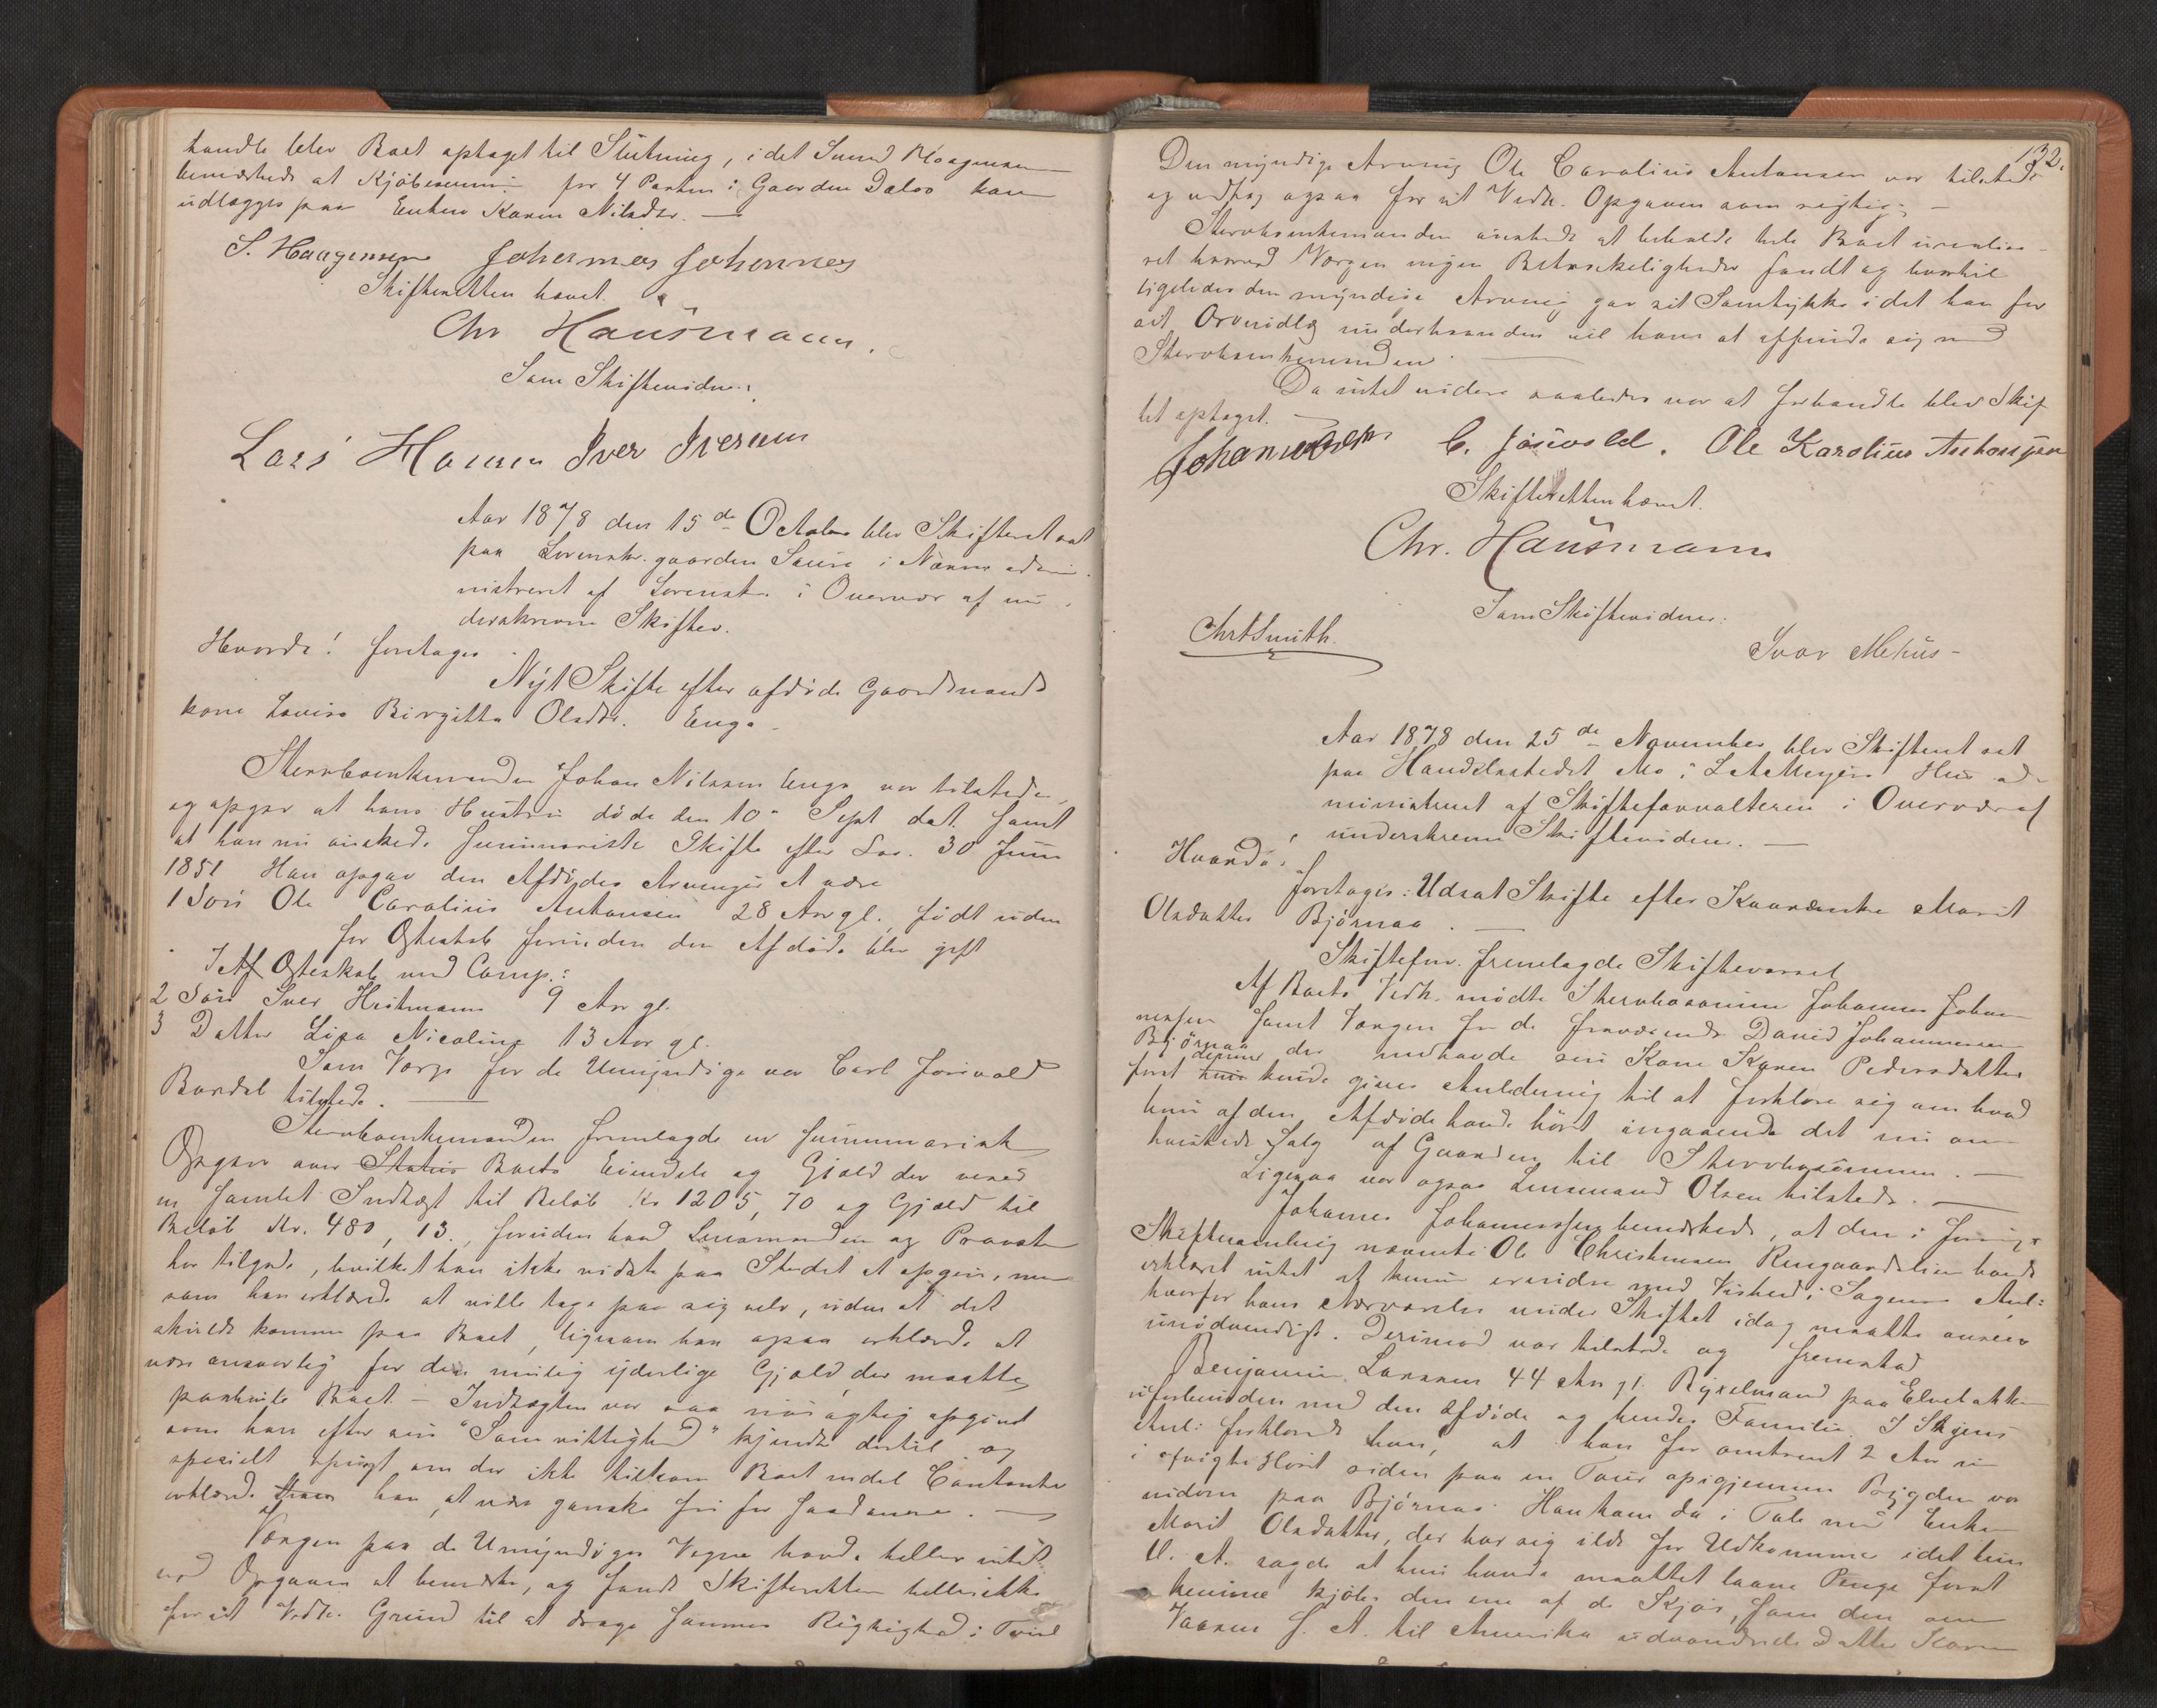 handle blev Boet optaget til Slutning, i det Svend Haagensen
bemærkede at Kjøbesummen for 4 Parten i Gaarden Dalos kan
udlægges paa Enken Karen Nilsdtr. —
S. Haagensen Johannes Johannes
Skifteretten hævet.
Chr Hausmann.
Som Skiftevidner:
Lars Hansen Iver Iversen
Aar 1878 den 15de October blev Skifteret sat
paa Lensm. gaarden i Næsne admi-
nistreret af Lensm. i Overvær af un-
derskrevne Skiftev.
Hvorda! foretages
Nyt Skifte efter afdøde Gaardmands
kone Lovisa Birgitta Olsdtr. Enge
Stervboenkemanden Johan Nilssen Enge var tilstede
og opgav at hans Hustru døde den 10 Sept dat. samt
at han nu ønskede summariske Skifte efter Lov. 30 Juni
1851 Han opgav den Afdødes Arvinger at være
1 Søn Ole Carolius Antonsen 28 Aar gl. født uden
for Ægteskab forinden den Afdøde blev gift
I Ægteskab med Comp.:
2 Søn Iver Hritmann 9 Aar gl.
3 Datter Lisa Nicoline 13 Aar gl.
Som Værge for de Umyndige var Carl Josvold
Bardal tilstede. —
Stervboenkemanden fremlagde en summarisk
Opgave over Status Boets Eiendele og Gjæld der viser
en samlet Indtægt til Beløb Kr 1205,70 og Gjæld til
Beløb Kr. 480,13., foruden hvad Lensmanden og Provsten
har tilgode, hvilket han ikke vidste paa Stedet at opgive, men
som han erklærede at ville tage paa sig selv, uden at det
skulde komme paa Boet, ligesom han ogsaa erklærede at
være ansvarlig for den mulig yderlige Gjæld der maatte
paahvile Boet — Indtægten var saa nøiagtig opgivet
som han efter sin "Samvittighed" kjendte dertil og
specielt spurgt om der ikke tilkom Boet endel Contanter
erklærede han, at være ganske fri for saadanne. —
Værgen paa de Umyndiges Vegne havde heller intet
ved Opgaven at bemærke, og fandt Skifteretten hellerikke
for sit Vedk. Grund til at drage sammes Rigtighed i Tvivl
132.
Den myndige Arving Ole Carolius Antonsen var tilstede
og vedtog ogsaa for sit Vedk. Opgaven som rigtig. —
Stervboenkemanden ønskede at beholde hele Boet urealise-
ret hvorved Værgen ingen Betænkeligheder fandt og hvortil
ligeledes den myndige Arving gav sit Samtykke i det han for
sit Arveudlæg underhaanden vil have at affinde sig med
Stervboenkemanden. —
Da intet videre saaledes var at forhandle blev Skif
tet optaget. —
C. Josvold. Ole Karolius Anthonsen
Skifteretten hævet.
Chr. Hausmann
Som Skiftevidner:
Chr Smith.
Ivar Mehus -
Aar 1878 den 25de November blev Skifteret sat
paa Handelsstedet Mo i L A Meyers Hus ad-
ministreret af Skifteforvalteren i Overvær af
underskrevne Skiftevidner. —
Hvorda!
foretages: Udsat Skifte efter Kaarenke Marit
Olsdatter Bjørnaa. —
Skiftefor. fremlagde Skiftevarsel
Af Boets Vedk. mødte Stervbosønnen Johannes Johan
nessen samt Værgen for de fraværende David Johannessen
Bjørnaa der medhavde sin Kone Karen Pedersdatter
forat denne kunde gives Anledning til at forklare sig om hvad
hun af den Afdøde havde hørt angaaende det nu om-
tvistede Salg af Gaarden til Stervbosønnen. —
Ligesaa var ogsaa Lensmand Olsen tilstede. —
Johannes Johannessen bemærkede, at den i forrige
Skiftesamling nævnte Ole Christensen Rengaardslien havde
erklæret intet at kunne erindre med Vished i Sagens Anl:
hvorfor hans Nærværelse under Skiftet idag maatte ansees
unødvendigt. Derimod var tilstede og fremstod
Benjamin Larssen 44 Aar gl. Rysselmand paa
uforbunden med den Afdøde og hendes Familie. I Skjens
Anl: forklarede han, at han for omtrent 2 Aar si-
siden paa en Tour opigjennem Bygden var
inden paa Bjørnaa. Han kom da i Tale med Enken
Marit Olsdatter, der bar sig ilde for Udkomme idet hun
bl. A. sagde at hun havde maattet laane Penge forat
kunne kjøbe den ene af de Kjør, som den om
Vaaren f. A. til Amerika udvandrede Datter Karen